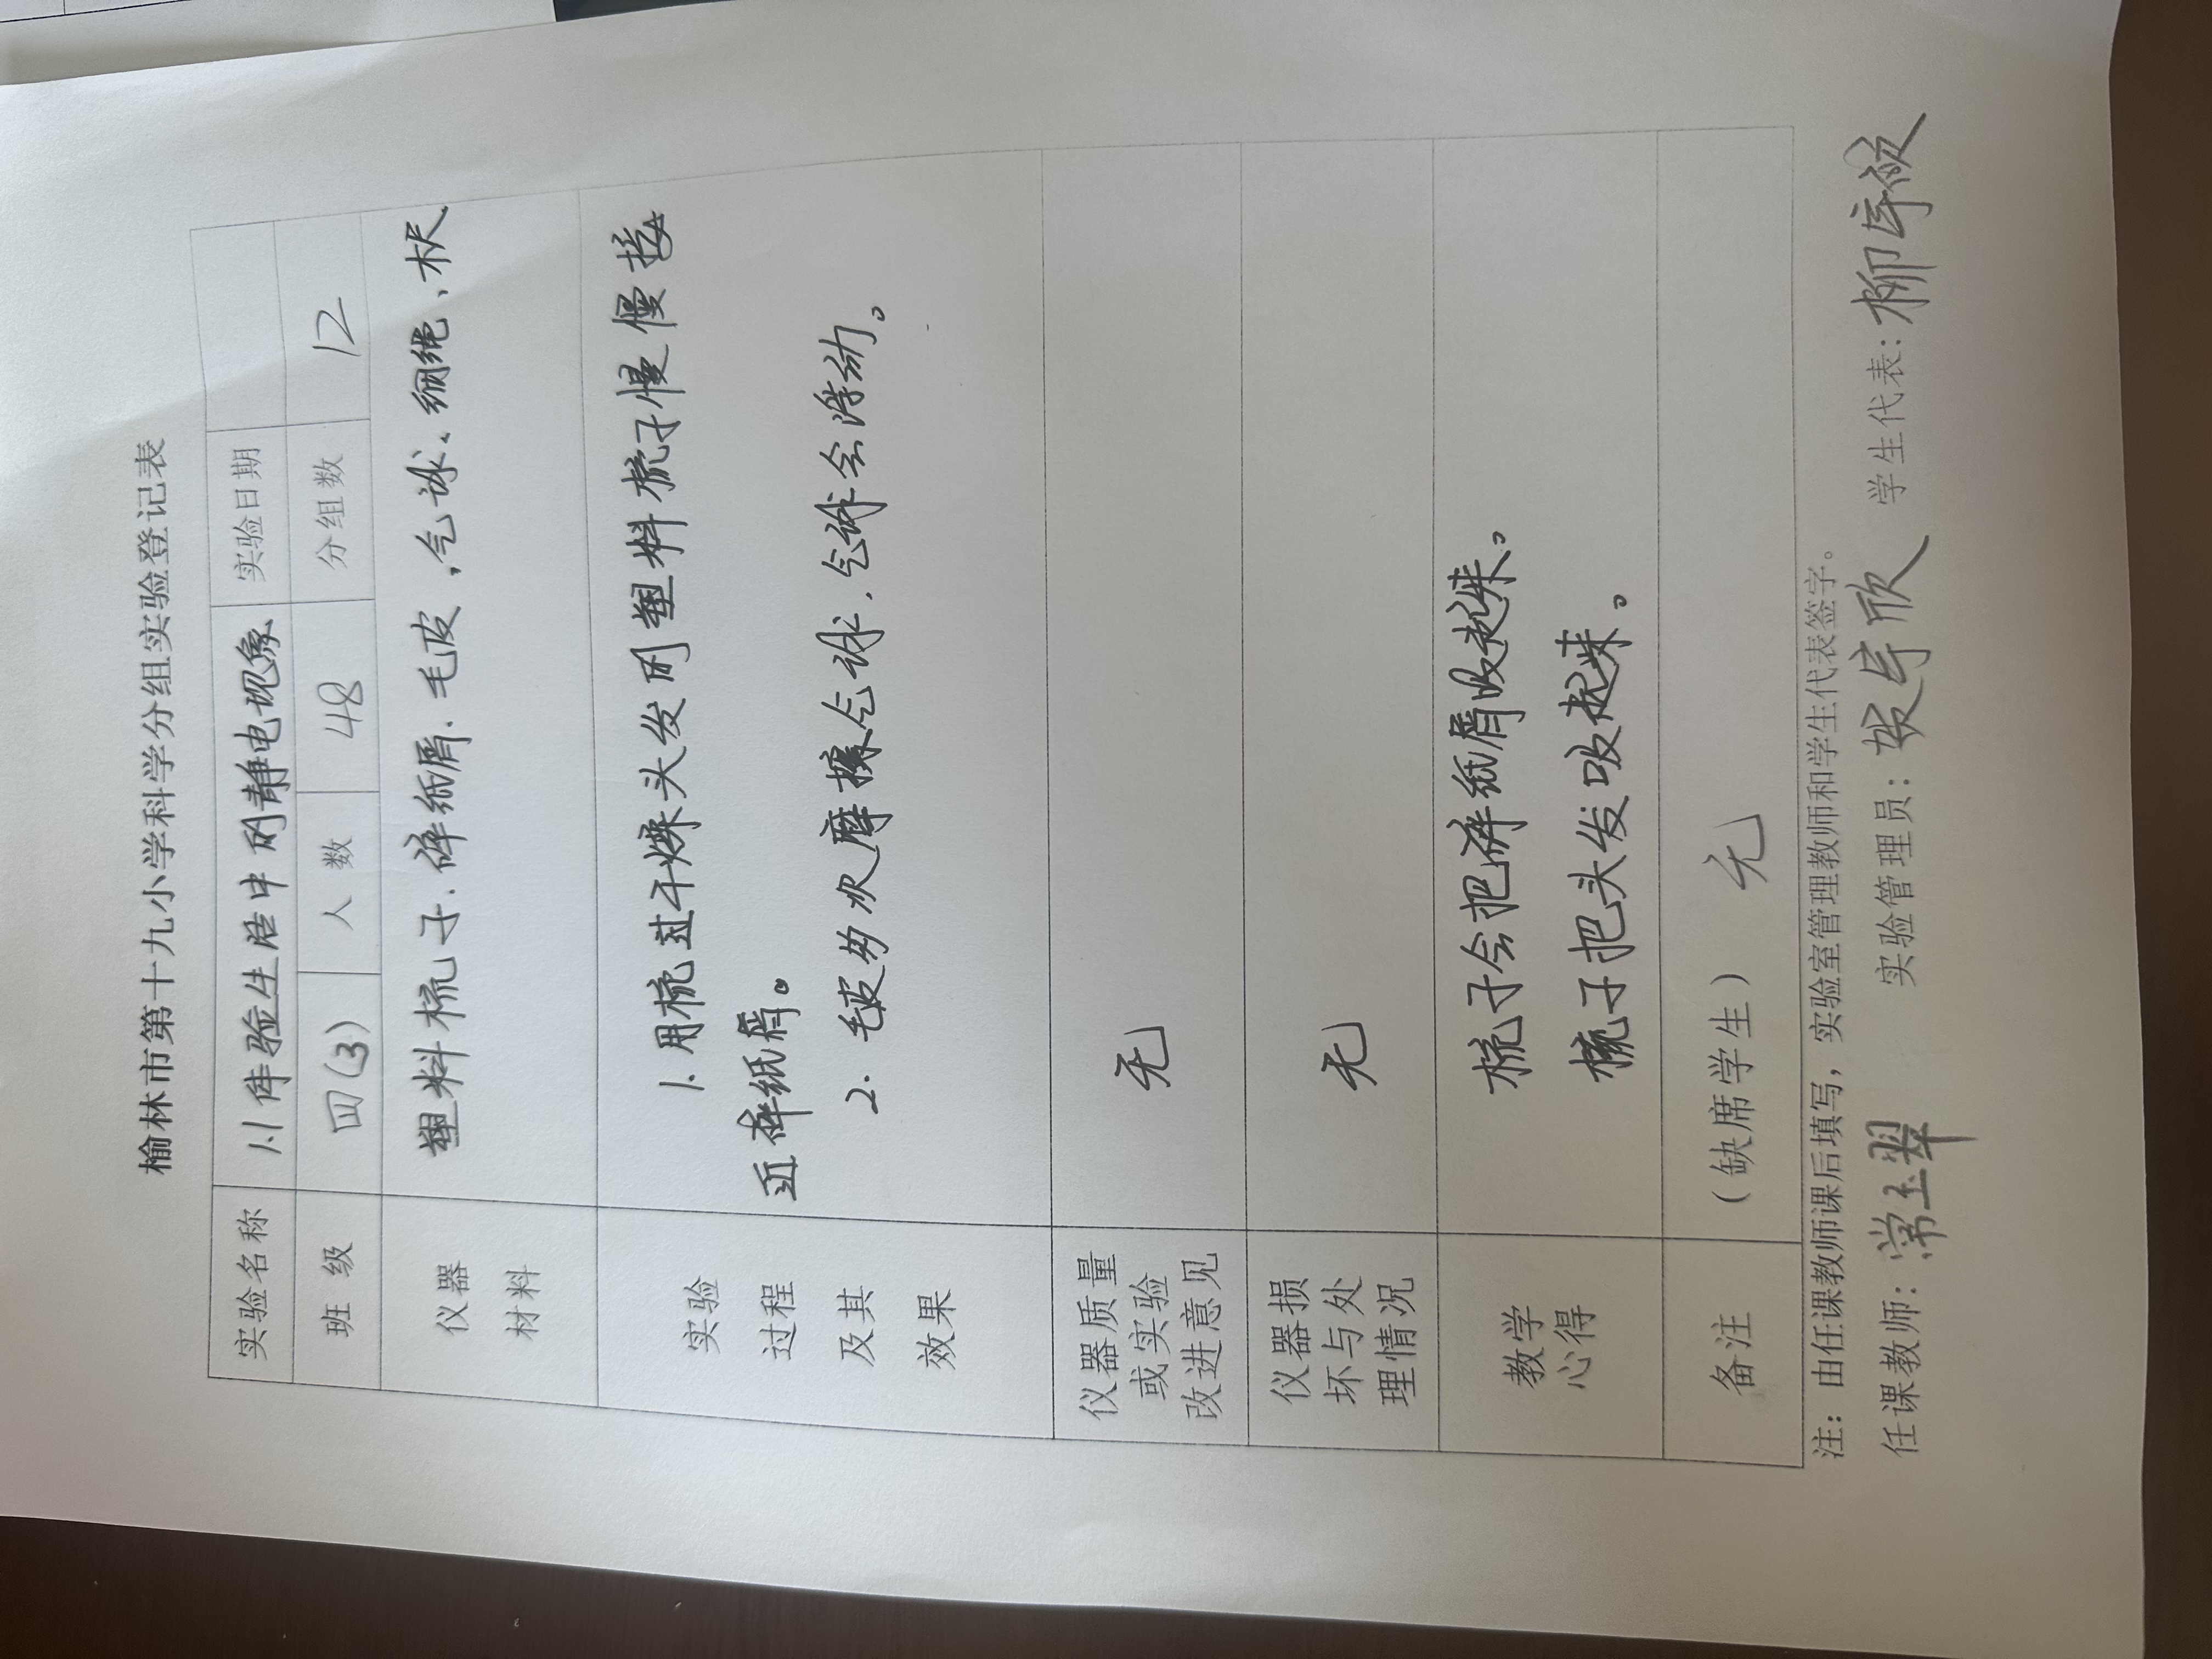 榆林市第十九小学科学分组实验登记表
实验名称 1.1体验生活中的静电现象 实验日期
班级 四(3) 人数 48 分组数 12
仪器材料 塑料梳子、碎纸屑、毛皮、气球、细绳、木尺
实验过程及其效果
1.用梳过干燥头发的塑料梳子慢慢接
近碎纸屑。
2.毛皮多次摩擦气球,气球会浮动。
仪器质量或实验改进意见 无
仪器损坏与处理情况 无
教学心得
梳子会把碎纸屑吸起来。
梳子把头发吸起来。
备注 (缺席学生) 无
注:由任课教师课后填写,实验室管理教师和学生代表签字。
任课教师:常玉翠 实验管理员: 学生代表: